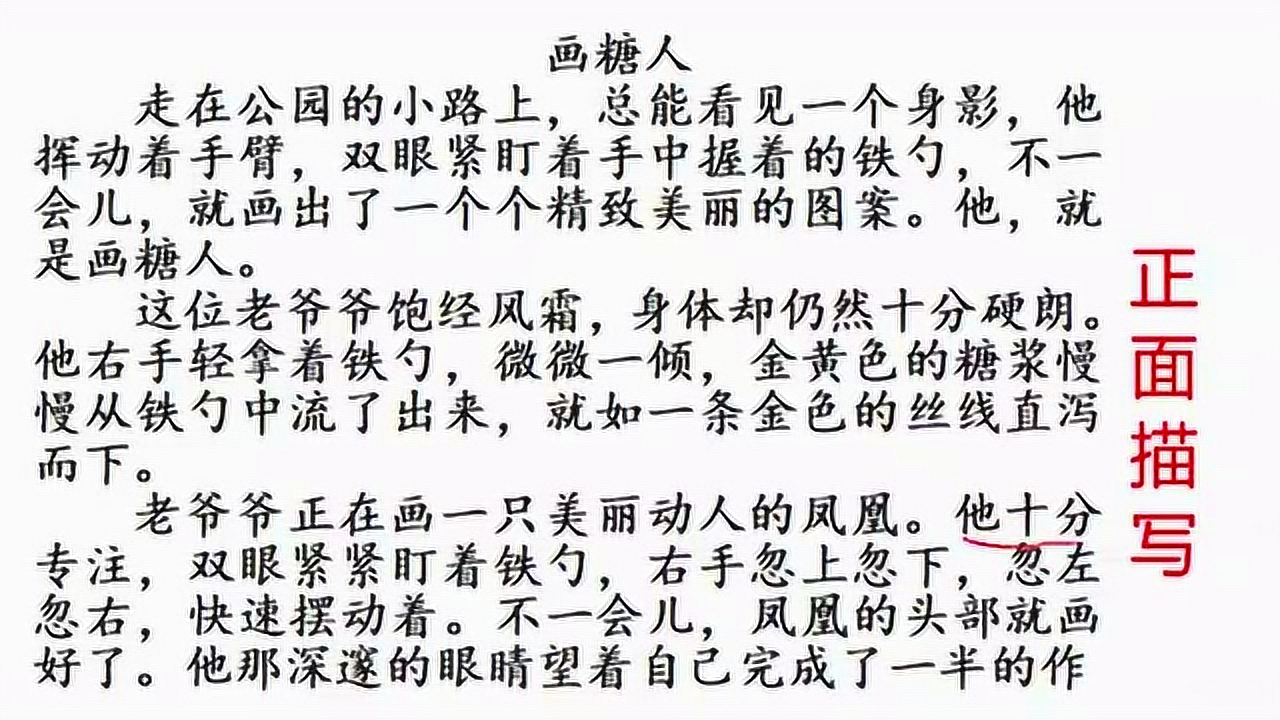 画糖人
走在公园的小路上，总能看见一个身影，他
挥动着手臂，双眼紧盯着手中握着的铁勺，不一
会儿，就画出了一个个精致美丽的图案。他，就
是画糖人。
这位老爷爷饱经风霜，身体却仍然十分硬朗。
他右手轻拿着铁勺，微微一倾，金黄色的糖浆慢
慢从铁勺中流了出来，就如一条金色的丝线直泻
而下。
老爷爷正在画一只美丽动人的凤凰。他十分
专注，双眼紧紧盯着铁勺，右手忽上忽下，忽左
忽右，快速摆动着。不一会儿，凤凰的头部就画
好了。他那深邃的眼睛望着自己完成了一半的作
正面描写